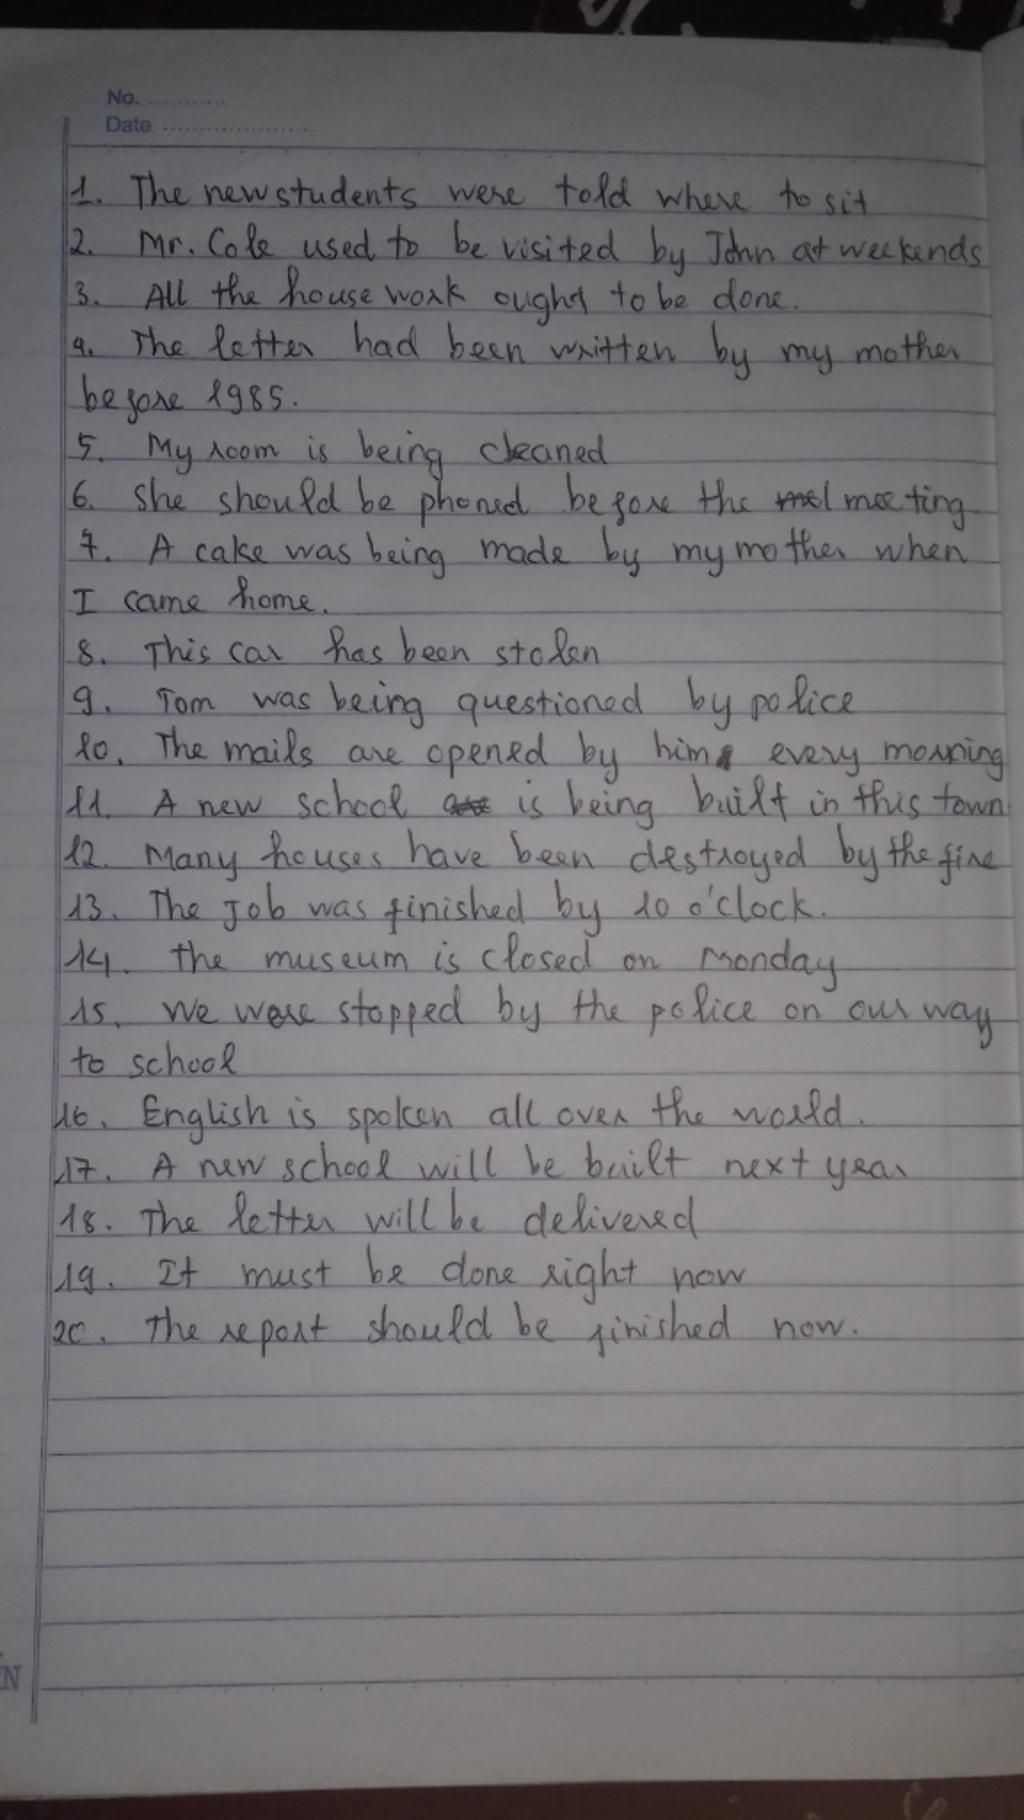 No. ............
Date ......................
1. The new students were told where to sit
2. Mr. Cole used to be visited by John at weekends
3. All the house work ought to be done.
4. The letter had been written by my mother
before 1985.
5. My room is being cleaned
6. She should be phoned before the meeting
7. A cake was being made by my mother when
I came home.
8. This car has been stolen
9. Tom was being questioned by police
10. The mails are opened by him every morning
11. A new school is being built in this town
12. Many houses have been destroyed by the fire
13. The Job was finished by 10 o'clock.
14. the museum is closed on Monday
15. We were stopped by the police on our way
to school
16. English is spoken all over the world.
17. A new school will be built next year
18. The letter will be delivered
19. It must be done right now
20. The report should be finished now.
N